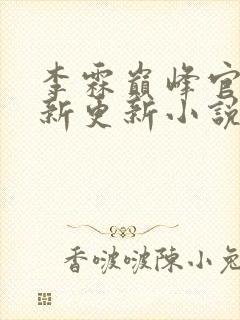 李霖巔峰官
新更新小說
香啵啵陳小兔